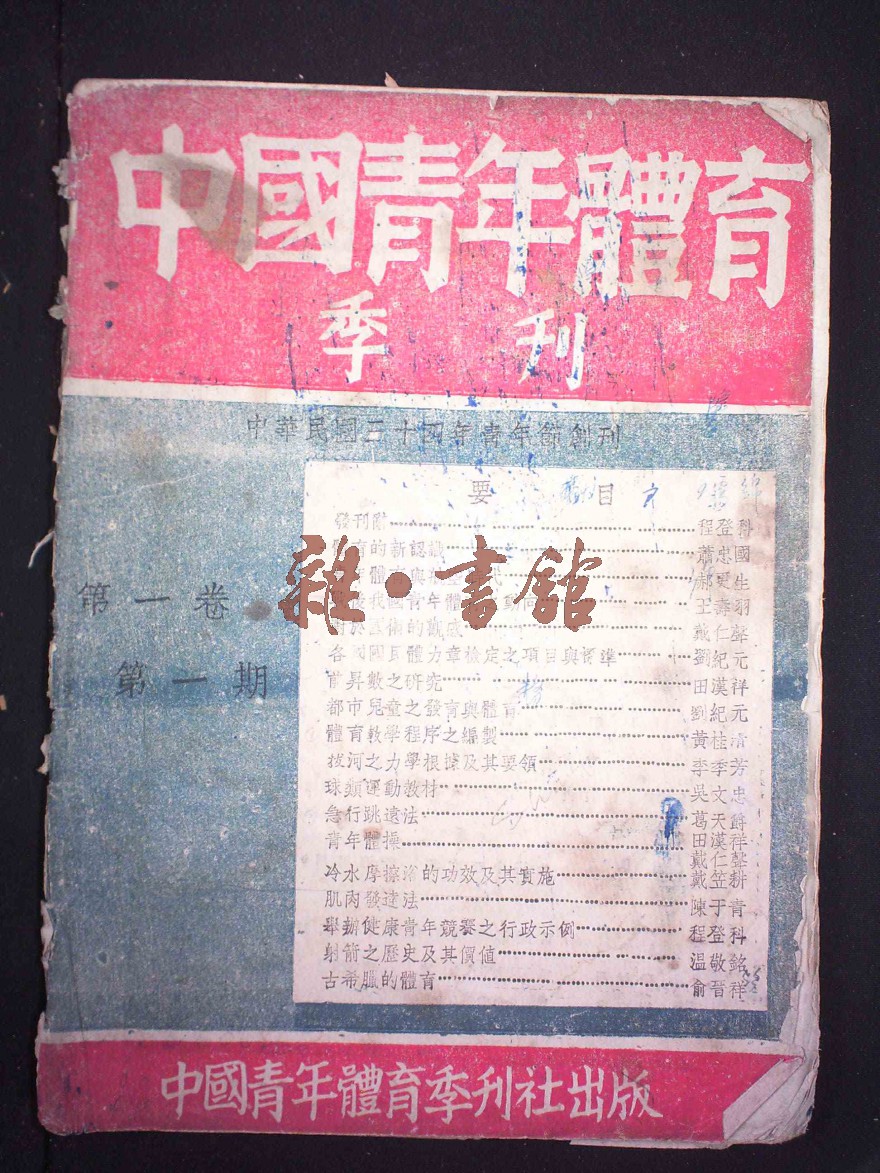 中國青年體育
季刊
中華民國三十四年青年節創刊
第一卷
第一期
要目
發刊辭 程登科
育的新認識 蕭忠國
體育與 郝更生
我國青年體 王壽羽
的感 戴仁聲
各國國民體力章檢定之項目與標準 劉紀元
首昇數之研究 田漢祥
都市兒童之發育與體育 劉紀元
體育教學程序之編製 黃桂清
拔河之力學根據及其要領 李季芳
球類運動教材 吳文忠
急行跳遠法 葛天爵
青年體操 田漢祥
戴仁聲
冷水摩擦浴的功效及其實施 戴笠耕
肌肉發達法 陳于青
舉辦健康青年競賽之行政示例 程登科
射箭之歷史及其價值 溫敬銘
古希臘的體育 俞晉祥
雜·書館
中國青年體育季刊社出版